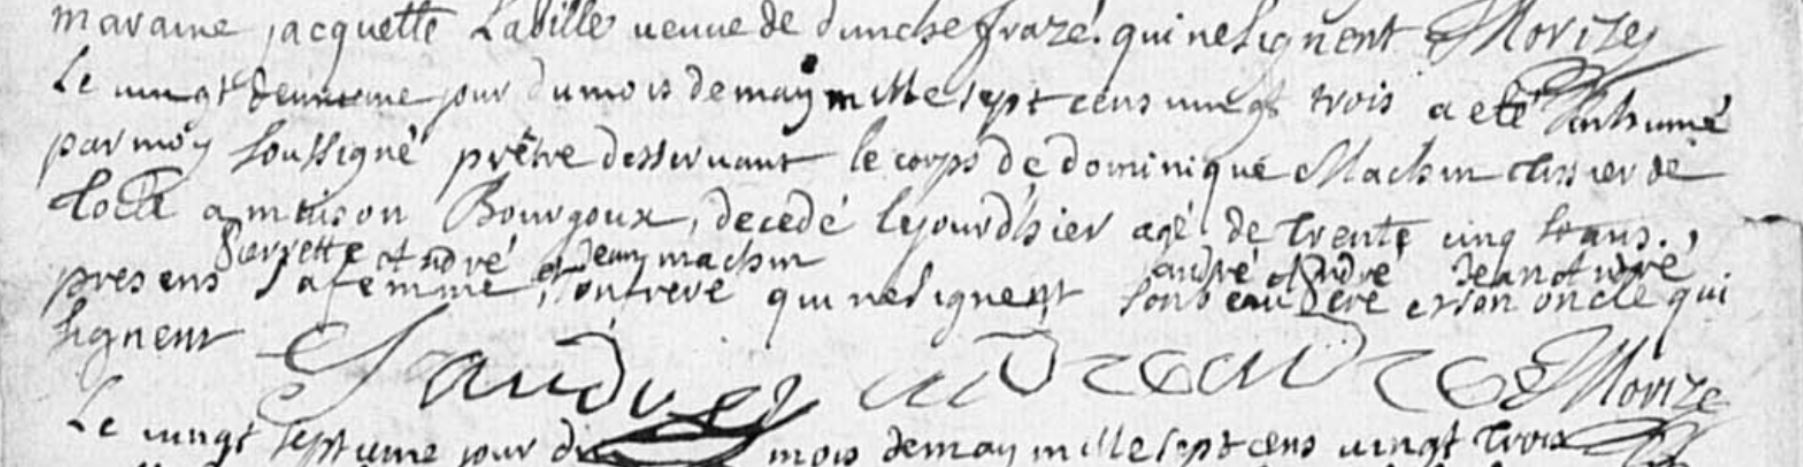 maraine jacquette Labille veuve de dunche frazé. qui ne signent Morize
Le vingt deuxieme jour du mois de may mille sept cens vingt trois a eté Inhumé
par moy soussigné prêtre desservant le corps de dominique Machin tissier de
a maison Bourgoux, decedé le jour d'hier agé de trente cinq ans.,
pierrette André jean machin andré André Jean André
presens sa femme, et son frere qui ne signent son beau pere et son oncle qui
signent
J andre andre andre Morize
Le vingt septieme jour du mois de may mille sept cens vingt trois